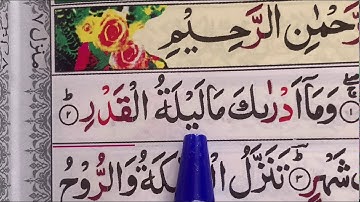 رَحْمٰنِ الرَّحِيْمِ
۱ وَمَاۤ اَدْرٰىكَ مَا لَيْلَةُ الْقَدْرِ ۲
شَهْرٍ ۳ تَنَزَّلُ وَالرُّوْحُ
منزل ۷